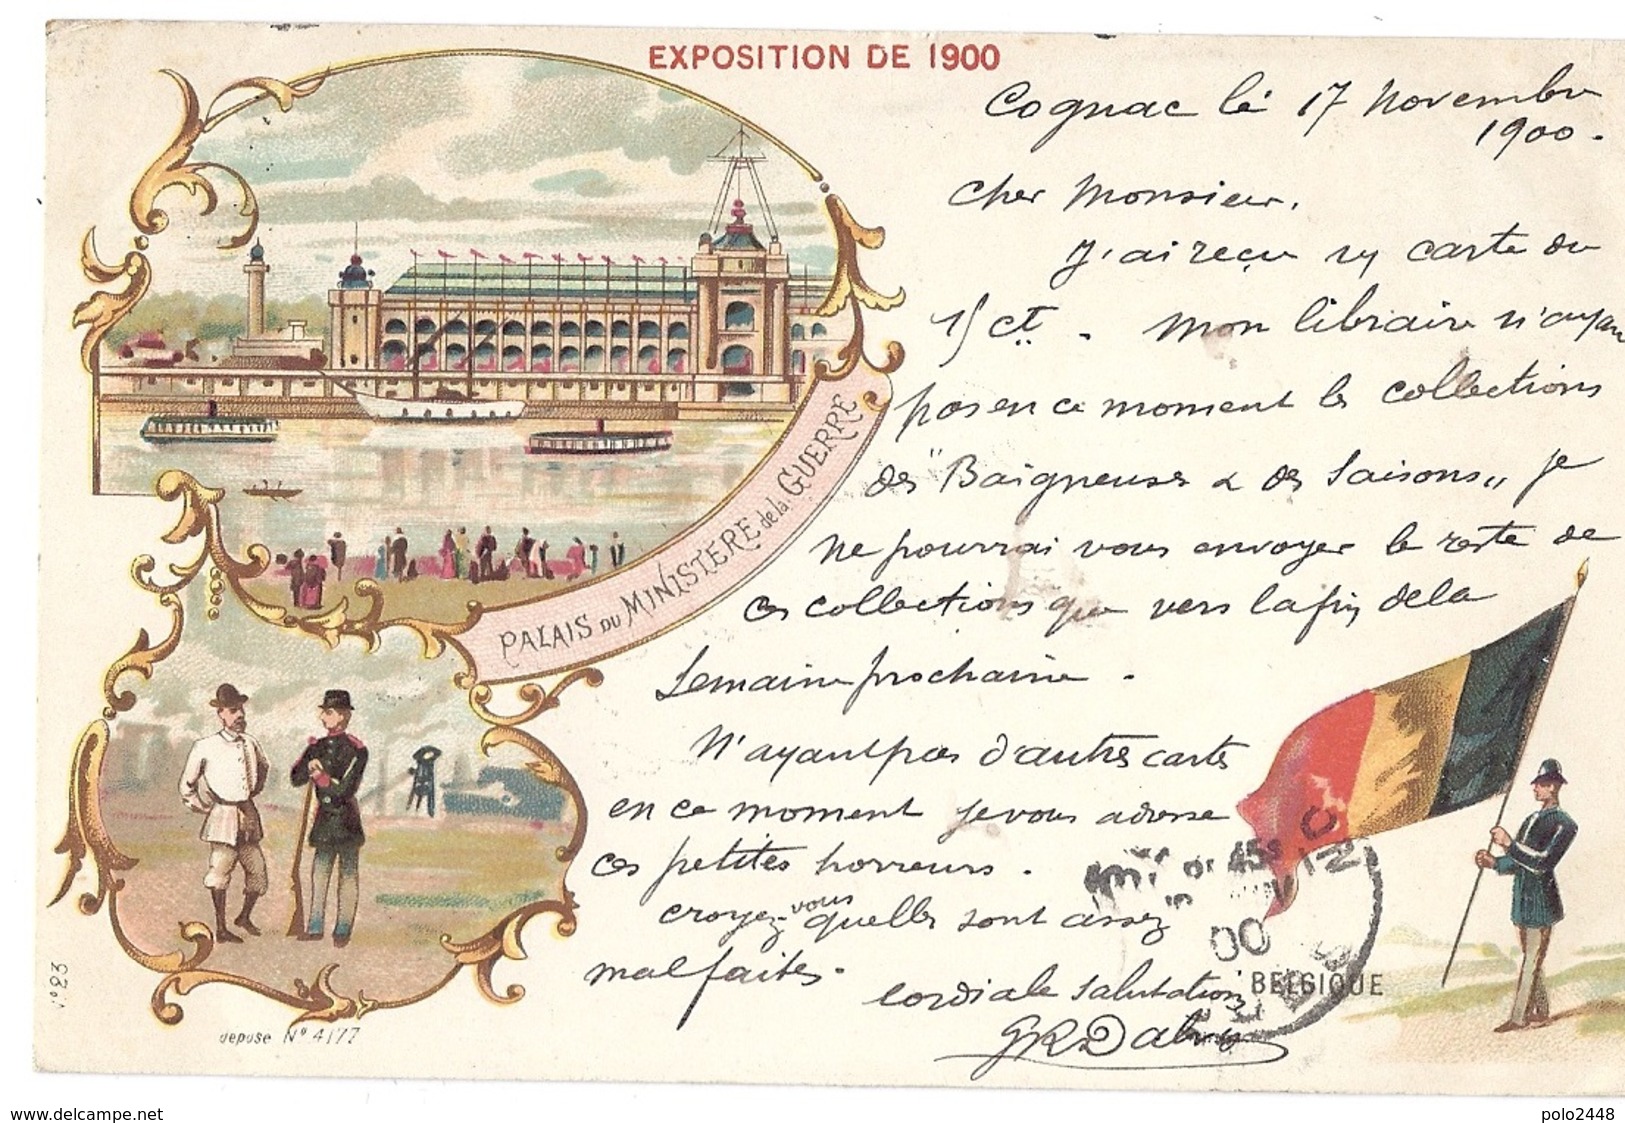 EXPOSITION DE 1900
Cognac le 17 Novembre
1900.
Cher Monsieur.
J'ai reçu carte du
15 ct. Mon libraire n'ayan
pas en ce moment les collections
des "Baigneuses & des Saisons" je
ne pourrai vous envoyer le reste de
ces collections que vers la fin de la
Semaine prochaine.
N'ayant pas d'autres cartes
en ce moment je vous adresse
ces petites horreurs.
croyez-vous quelles sont assez
mal faites.
Cordiale salutation
PALAIS DU MINISTERE de la GUERRE
BELGIQUE
00
depose No 4177
No 23
www.delcampe.net
polo2448